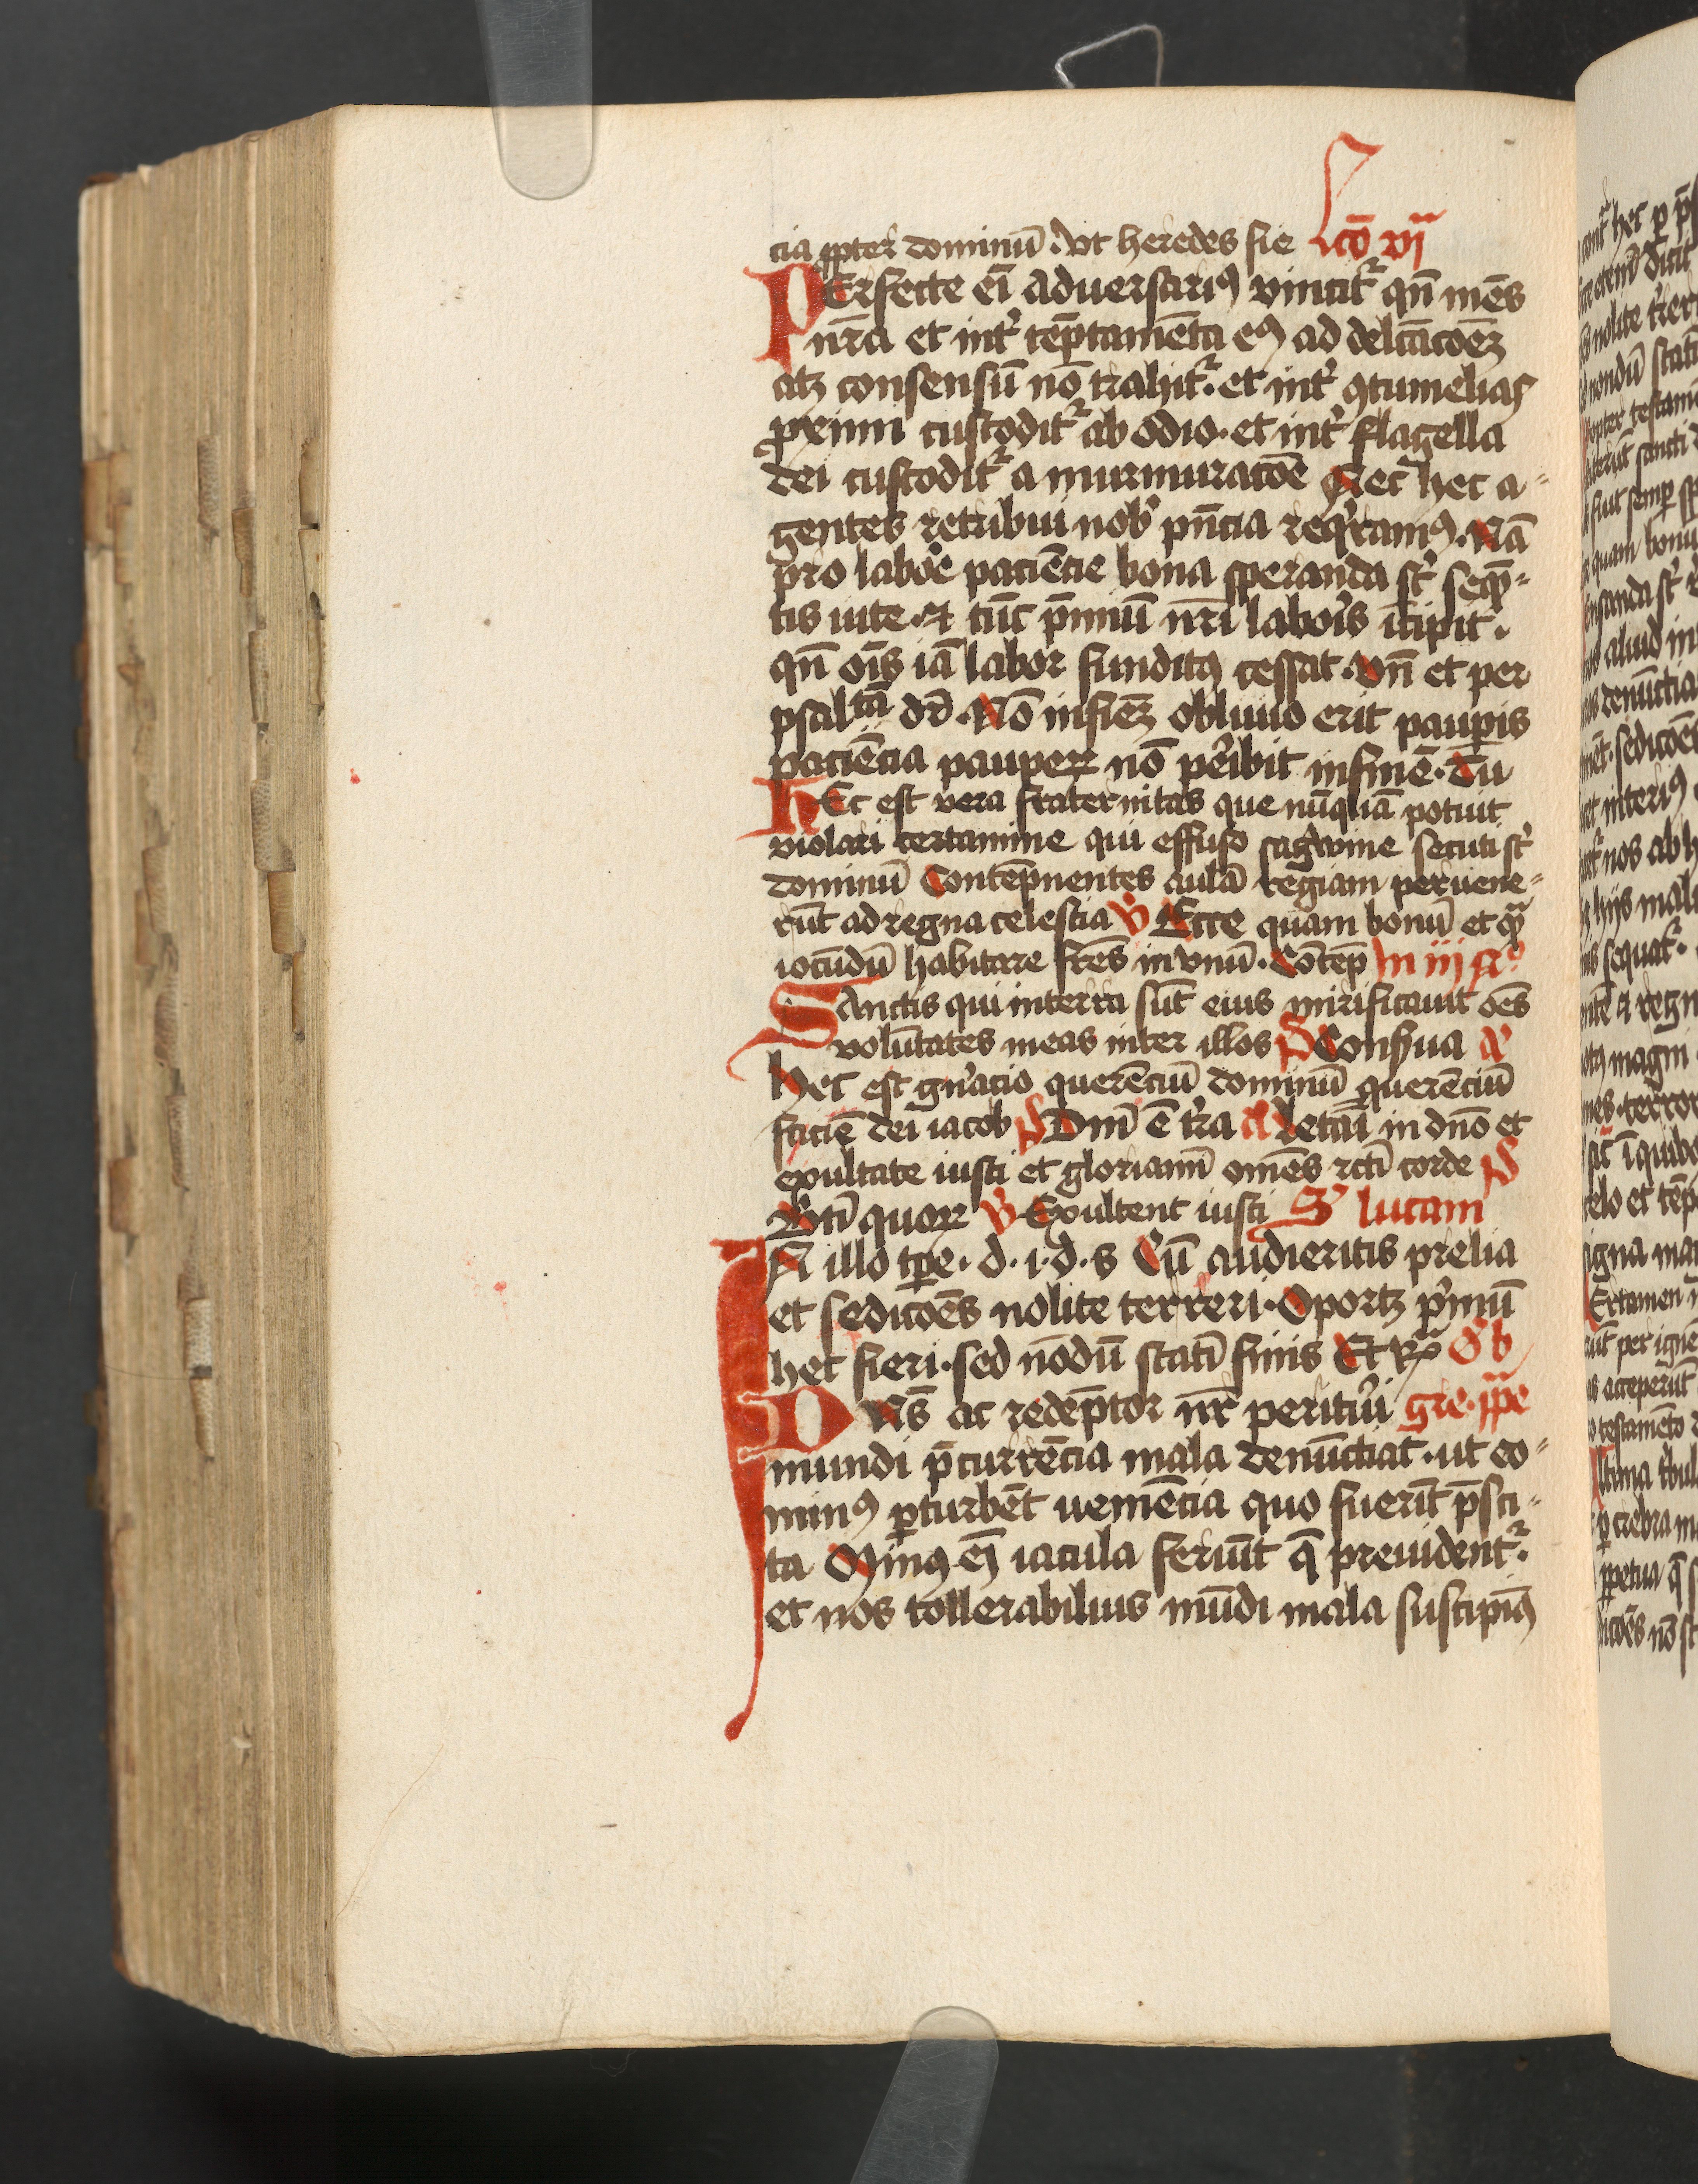 cia ꝓpter dominū. Vt heredes fie Lcō vi
PErfecte eī aduersariꝰ vincit᷑ qn̄ mēs
nr̄a et int̓ tēptamēta eiꝰ ad delcā̄coēꝫ
atꝫ consensū nō trahit᷑. et int̓ ꝯtumelias
ꝓximi custodit᷑ ab odio. et int̓ flagella
dei custodit᷑ a murmuracōe Nec hec a-
gentes retribui nob̓ pn̄cia reqͥramꝰ. Nā
pro laboe paciēcie bona speranda st̓ seqͣn-
tis vite. ⁊ tūc p̄miū nr̄i labois īcipit.
qn̄ oīs iā labor funditꝰ cessat. Vn̄ et per
psaltā dr̄. Nō infinēꝫ obliuio erit pauꝑis
paciēcia pauperꝝ nō ꝑibit infinē. Tu
HEc est vera fraternitas que nūquā potuit
violari certamine qui effuso sāgwine secuti st̓
dominū Contēpnentes aulā regiam peruene-
rūt ad regna celestia V̓ Ecce quam bonū et qͣ
iocūdū habitare frēs in vnū. Cōtēp In iij n̊
SAnctis qui in terra sūt eius mirificauit oēs
volūtates meas inter illos P̓ Conserua A
Hec est gn̓acio querēciū dominū querēciū
faciē dei iacob P̓ Dn̄i ē tr̓a A Letam̄ in dn̄o et
exultate iusti et gloriam̄ om̄es rcti corde P̓
Bt̄i quorꝝ V̓ Exultent iusti S̓ lucam
IN illo tꝑe. d. i. d. s Cū audieritis prelia
et sedicōēs nolite terreri. Oportꝫ pͥmū
hec fieri. sed nōdū statī finis Et Rͣ Ob
DNs̄ ac redēptor nr̄ perituri gre. ppe
mundi p̄currēcia mala denūctiat. ut eo-
minꝰ ꝑturbēt veniēcia quo fuerīt p̄sci-
ta Minꝰ em̄ iacula feriūt q̄ preuident᷑.
et nos tollerabiluis mūdi mala suscipiꝰ